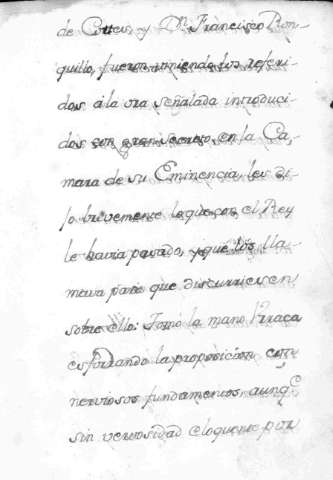 de Cortes, y Dn. Francisco Ron-
quillo, fueron viniendo los referi-
dos à la ora señalada introduci-
dos con gran secreto, en la Ca-
mara de su Eminencia les di-
jo brevemente lo que con el Rey
le havia pasado, y que los lla-
mava para que discurriesen
sobre ello: Tomo la mano Vrraca
esforzando la proposicion con
nerviosos fundamentos, aunqe.
sin verbosidad eloquente por